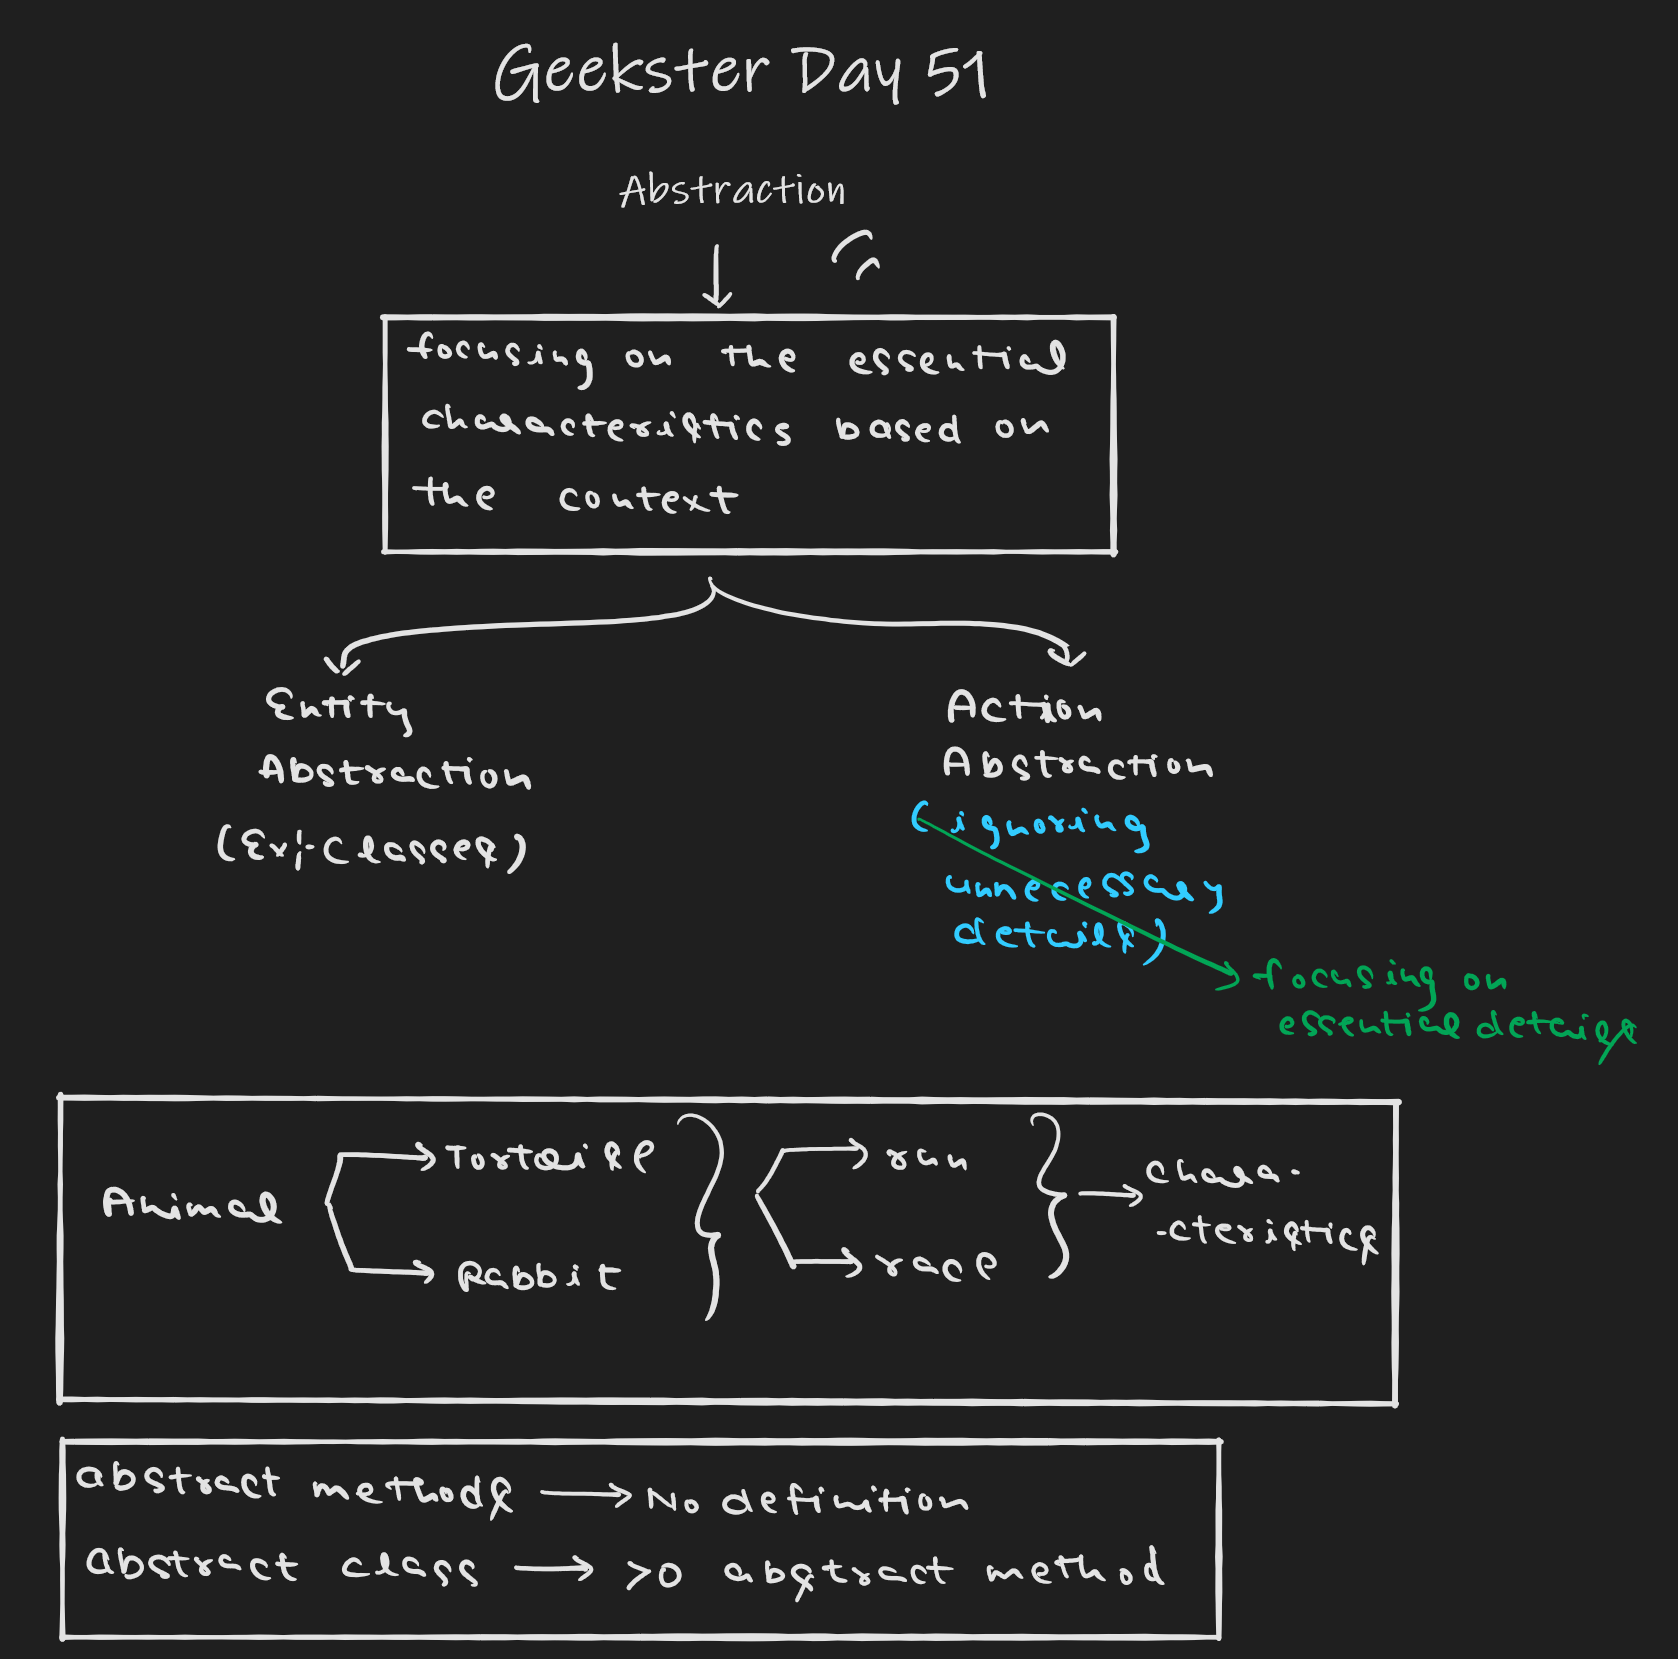 Geekster Day 51
Abstraction
focusing on the essential
characteristics based on
the context
Entity
Abstraction
(Ex:-Classes)
Action
Abstraction
(ignoring
unnecessary
details)
focusing on
essential details
Animal
Tortoise
Rabbit
run
race
Chara-
-cteristics
abstract methods → No definition
abstract class → >0 abstract method